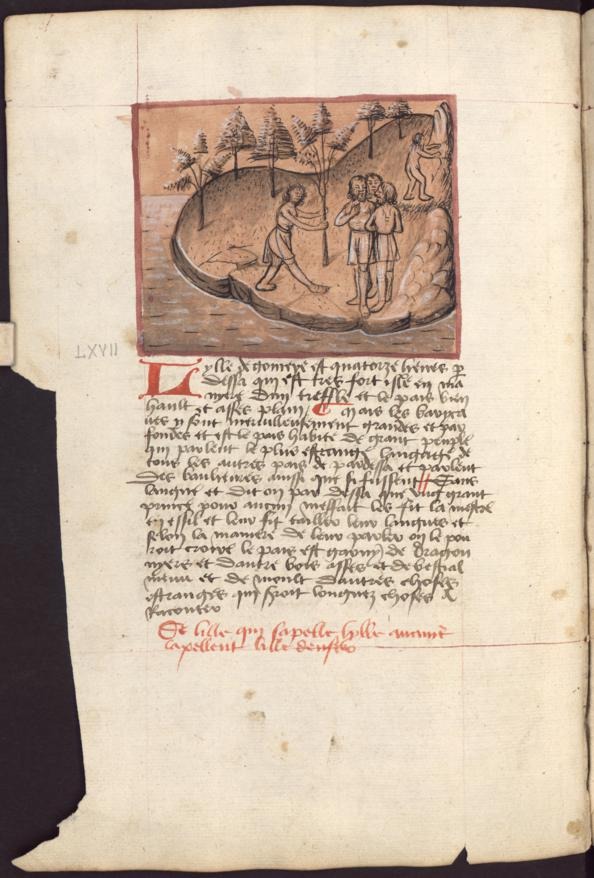 LXVII
Lylle de gomere est quatorze lieues par
dessa qui est tres fort isle en ma
nyere dun treffle et le pais bien
hault et asses plain Mais les bariqua
ves y sont merveilleusement grandes et par
fondes et est le pais habité de grant peuple
qui parlent le plus estrange langaige de
tous les autres pais de pardessa et parlent
des baulievres ainssi que si fussent Sans
langue et dit on par dessa que ung grant
prince pour aucun meffait les fit la mettre
en essil et leur fit tailler leur langues et
selon la maniere de leur parler on le pou
roit croire le pais est garny de dragon
nyers et dautre bois asses et de bestial
menu et de moult dautres choses
estranges qui seroit longuez choses A
Raconter
De lille qui sapelle lylle aucuns
lapellent lille denfer